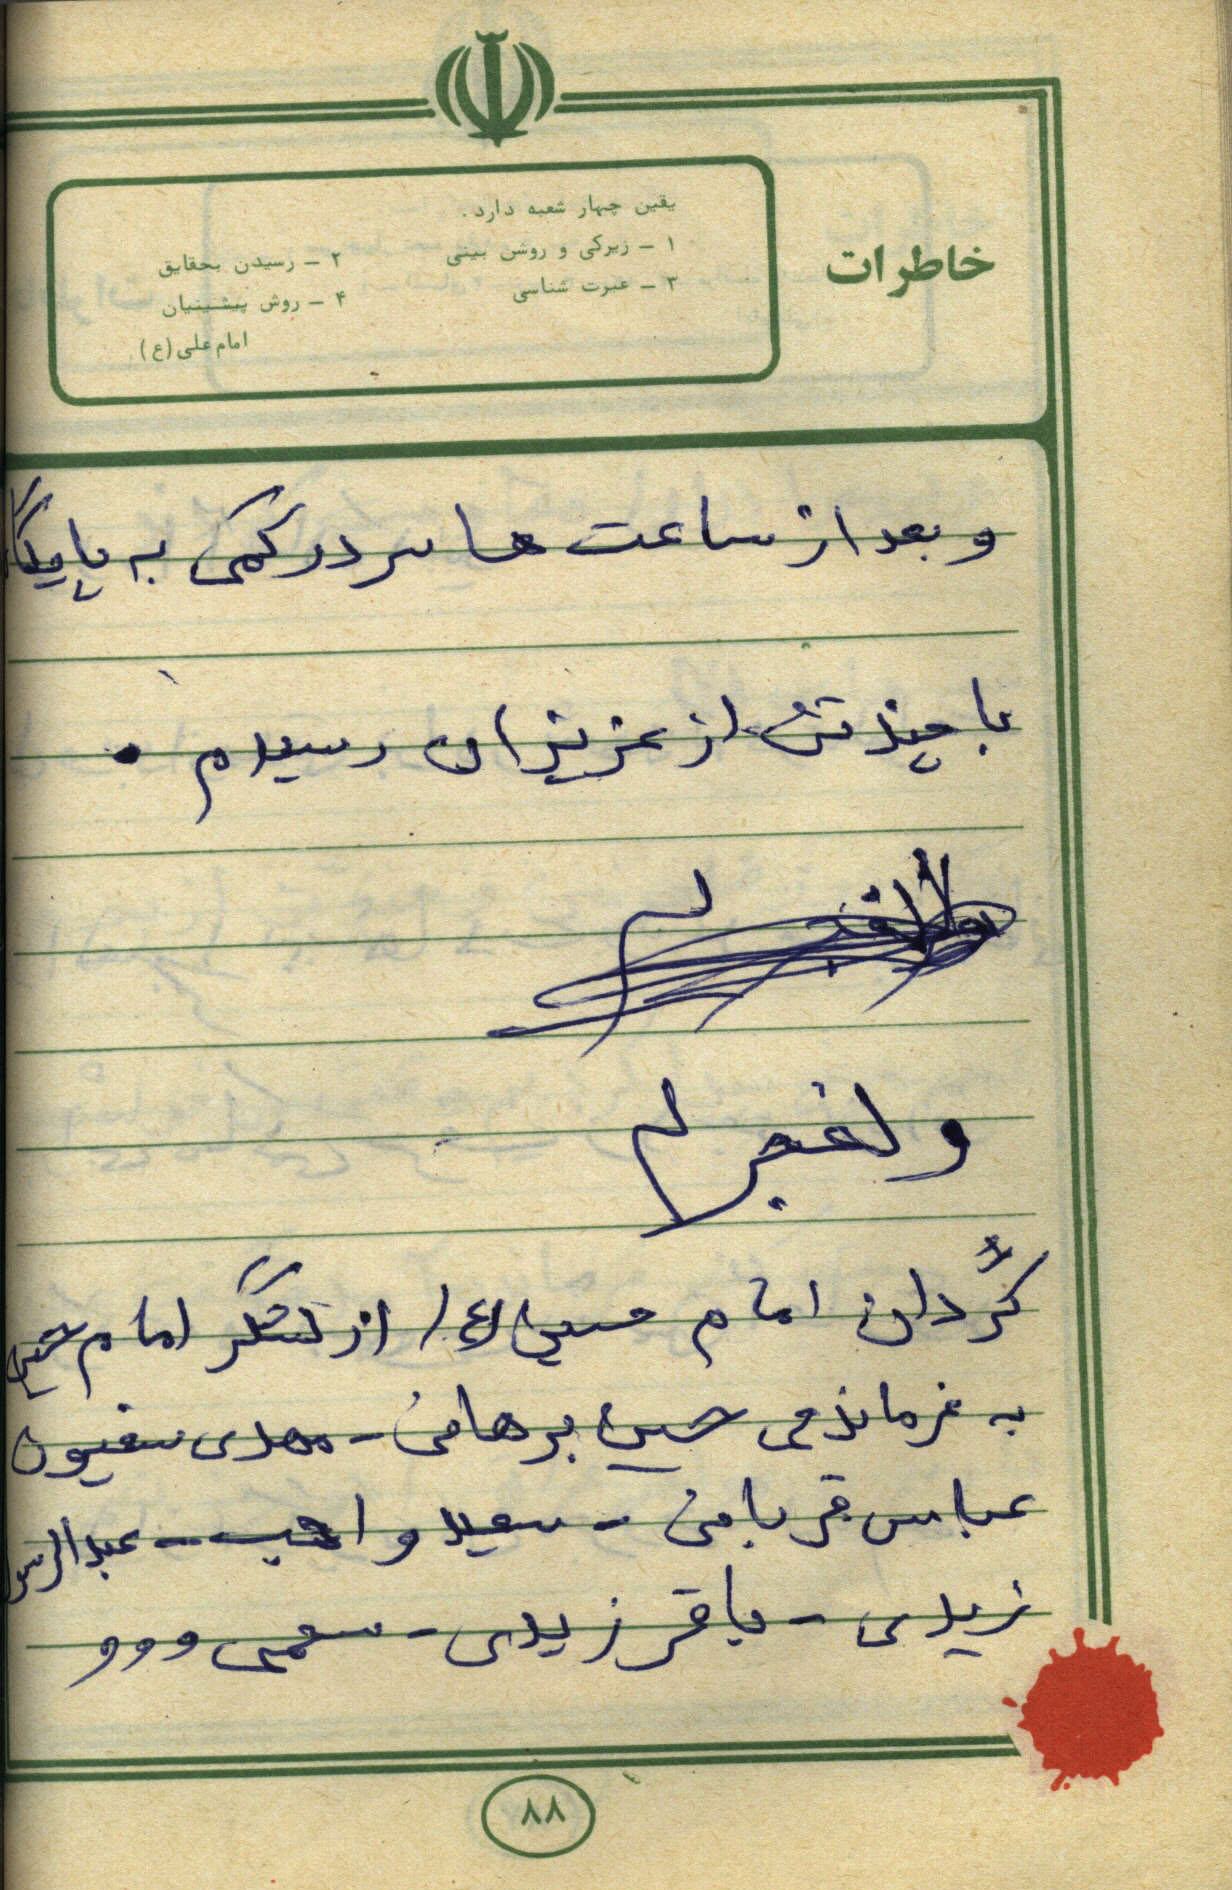 خاطرات
یقین چهار شعبه دارد.
۱ - زیرکی و روشن بینی
۲ - رسیدن بحقایق
۳ - عبرت شناسی
۴ - روش پیشینیان
امام علی (ع)
و بعد از ساعت ها سر در گمی به پایگاه
با چند تن از عزیزان رسیدم .
ولفجر
گردان امام حسین (ع) از لشگر امام حسین
به فرماندهی حسین برهانی - مهدی سفیون
عباس قربانی - سعید و اهب - عبدالرسو
زیدی - باقر زیدی - سعمی و و و
۸۸